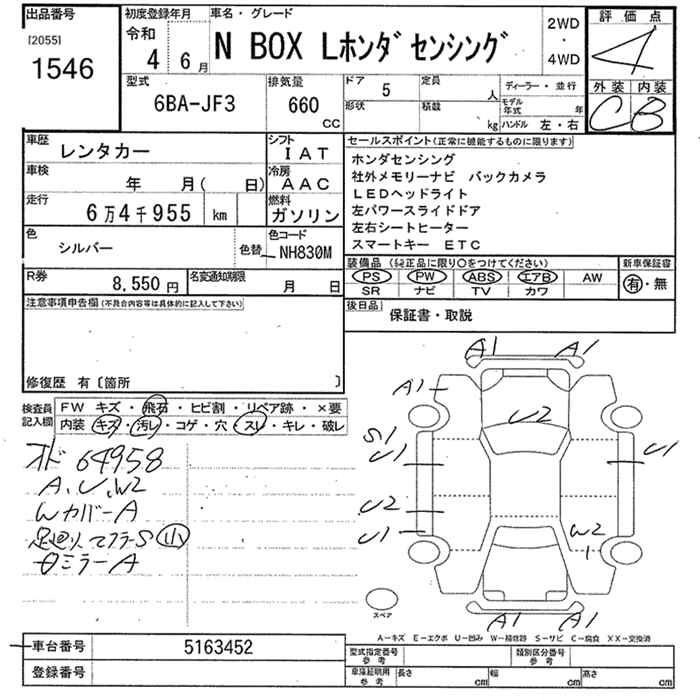 出品番号 初度登録年月 車名・グレード 評価点
[2055] 令和
1546 4 6月 N BOX Lホンダセンシング 2WD・4WD 4
型式 排気量 ドア 5 定員 人 ディーラー・並行 外装 内装
6BA-JF3 660 CC 形状 積載 kg モデル年式 年 C B
ハンドル 左・右
車歴 レンタカー シフト IAT セールスポイント(正常に機能するものに限ります)
車検 年 月( 日) 冷房 AAC ホンダセンシング
社外メモリーナビ バックカメラ
走行 6万4千955 km 燃料 ガソリン LEDヘッドライト
左パワースライドドア
色 シルバー 色替 色コード NH830M 左右シートヒーター
スマートキー ETC
R券 8,550円 名変通知期限 月 日 装備品(純正品に限り○をつけてください) 新車保証書
PS PW ABS エアB AW 有・無
SR ナビ TV カワ
注意事項申告欄(不具合内容等は具体的に記入して下さい) 後日品 保証書・取説
修復歴 有〔箇所 〕
検査員記入欄 FW キズ・飛石・ヒビ割・リペア跡・×要
内装 キズ・汚レ・コゲ・穴・スレ・キレ・破レ
オド 64958
A、U、W2
Wカバ-A
足廻り マフラ-S 小
ミラ-A
A1 A1
A1
U2
S1
U1 U1
U2
U1 W2
A1 A1
スペア
A-キズ E-エクボ U-凹み W-補修跡 S-サビ C-腐食 XX-交換済
車台番号 5163452 型式指定番号 参考 類別区分番号 参考
登録番号 車庫証明用 参考 長さ cm 幅 cm 高さ cm